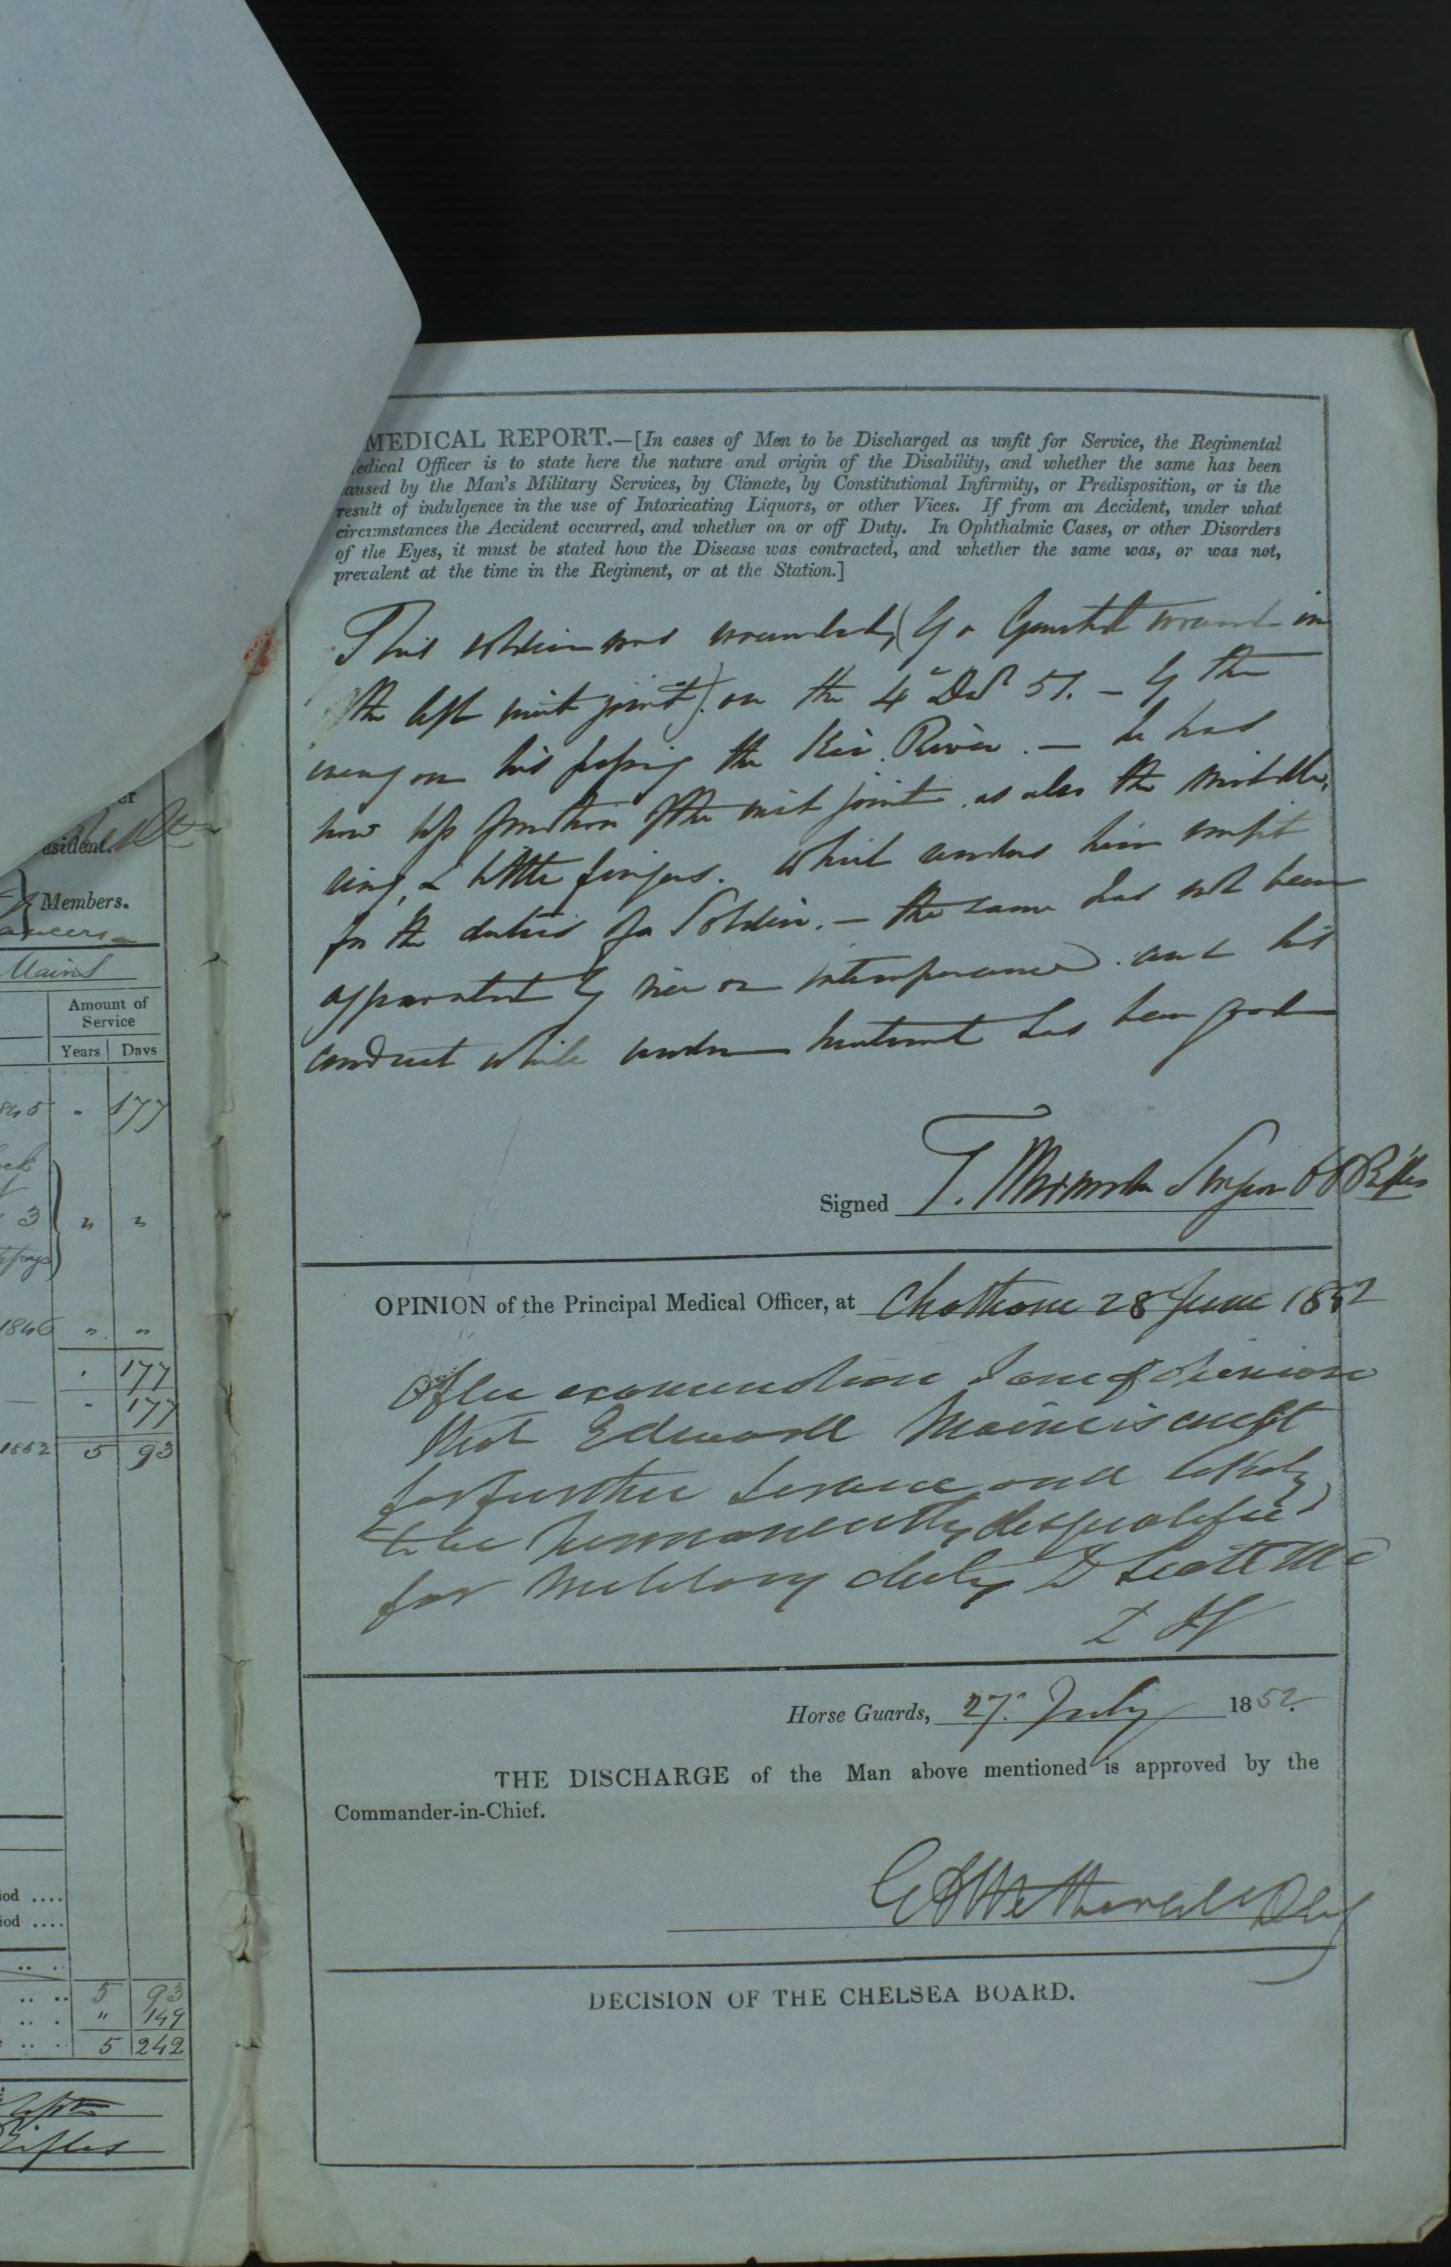 MEDICAL REPORT.—[In cases of Men to be Discharged as unfit for Service, the Regimental
edical Officer is to state here the nature and origin of the Disability, and whether the same has been
aused by the Man's Military Services, by Climate, by Constitutional Infirmity, or Predisposition, or is the
result of indulgence in the use of Intoxicating Liquors, or other Vices. If from an Accident, under what
circumstances the Accident occurred, and whether on or off Duty. In Ophthalmic Cases, or other Disorders
of the Eyes, it must be stated how the Disease was contracted, and whether the same was, or was not,
prevalent at the time in the Regiment, or at the Station.]
This soldier was wounded, (by a Gunshot wound in
the left wrist joint). on the 4" 51. – by the
enemy on his passing the Kei River. — he has
now loss function of the wrist joint as also the middle,
ring, & little fingers. which renders him unfit
for the duties of a Soldier. – the same has not been
by vice or intemperance. and his
conduct while under treatment has been good
Signed T. Surgeon 60 Rifles
OPINION of the Principal Medical Officer, at Chatham 28 June 1852
After examination I am of opinion
that Edward Maine is unfit
for further Service and likely
to be permanently disqualified
for Military duty D Scott MD
I H
Horse Guards, 27" July 1852.
THE DISCHARGE of the Man above mentioned is approved by the
Commander-in-Chief.
G A Wetherall DAG
DECISION OF THE CHELSEA BOARD.
er
esident.
Members.
ancers
Mains
Amount of
Service
Years Days
845 " 177
3 " "
1846 " "
" 177
" 177
1852 5 93
iod ....
iod ....
.. .. 5 93
.. . " 149
.. .. 5 242
Capt
Rifles